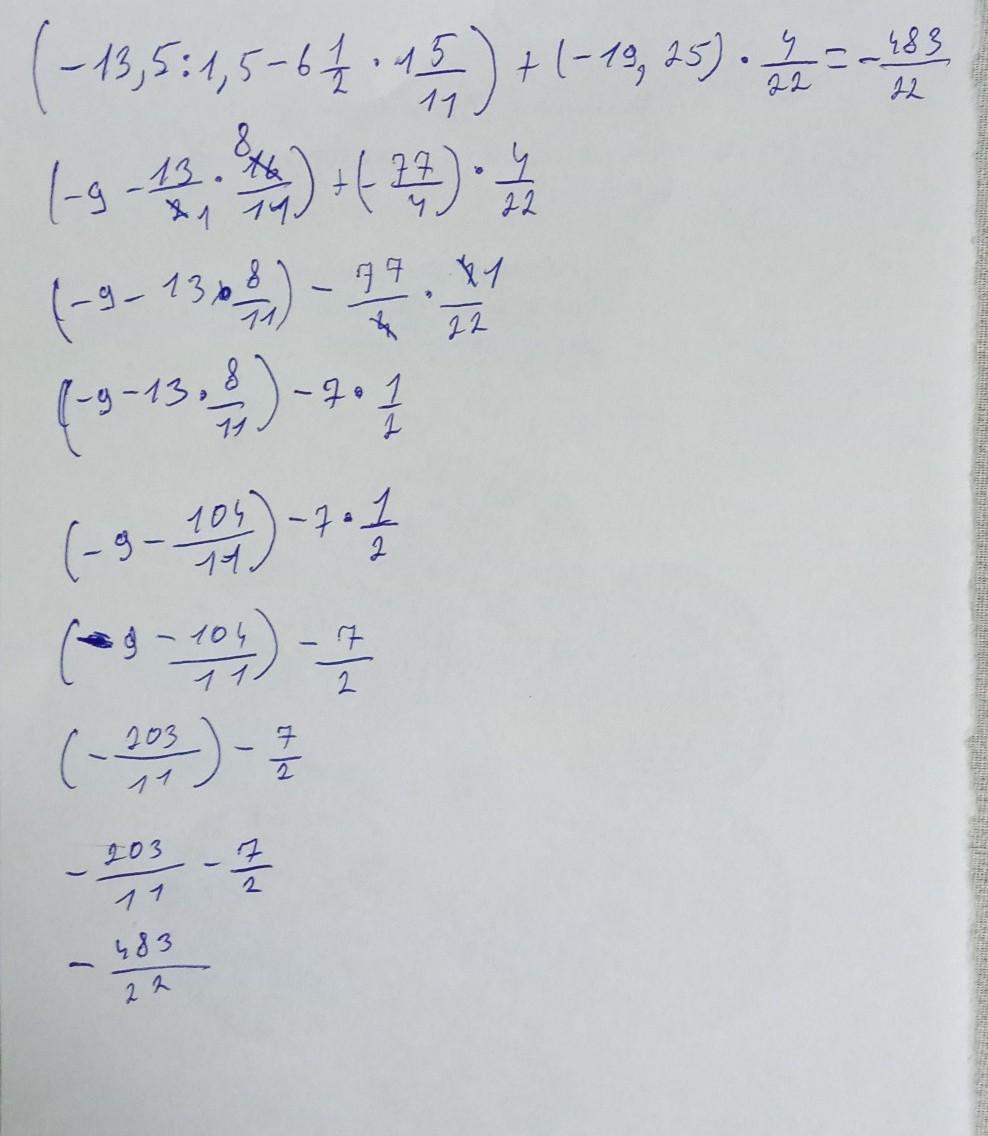 (-13,5:1,5-6 1/2 · 1 5/11) + (-19,25) · 4/22 = -483/22
(-9 - 13/2 1 · 8 16/11) + (-77/4) · 4/22
(-9 - 13 · 8/11) - 77/4 · 4 1/22
(-9 - 13 · 8/11) - 7 · 1/2
(-9 - 104/11) - 7 · 1/2
(-9 - 104/11) - 7/2
(-203/11) - 7/2
-203/11 - 7/2
-483/22